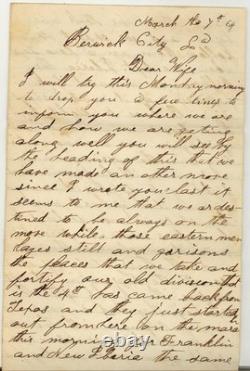 March the 7th 64
Berwick City La
Dear Wife
I will try this Monday morning
to drop you a few lines to
inform you where we are
and how we are getting
along well you will see by
the heading of this that we
have made an other move
since I wrote you last it
seems to me that we ar des-
tined to be always on the
move while those eastern
stell and garisons
the places that we take and
fortify our old division that
is the 4th has came back from
Texas and they just started
out from here on the march
this morning for Franklin
and New Iberia the same